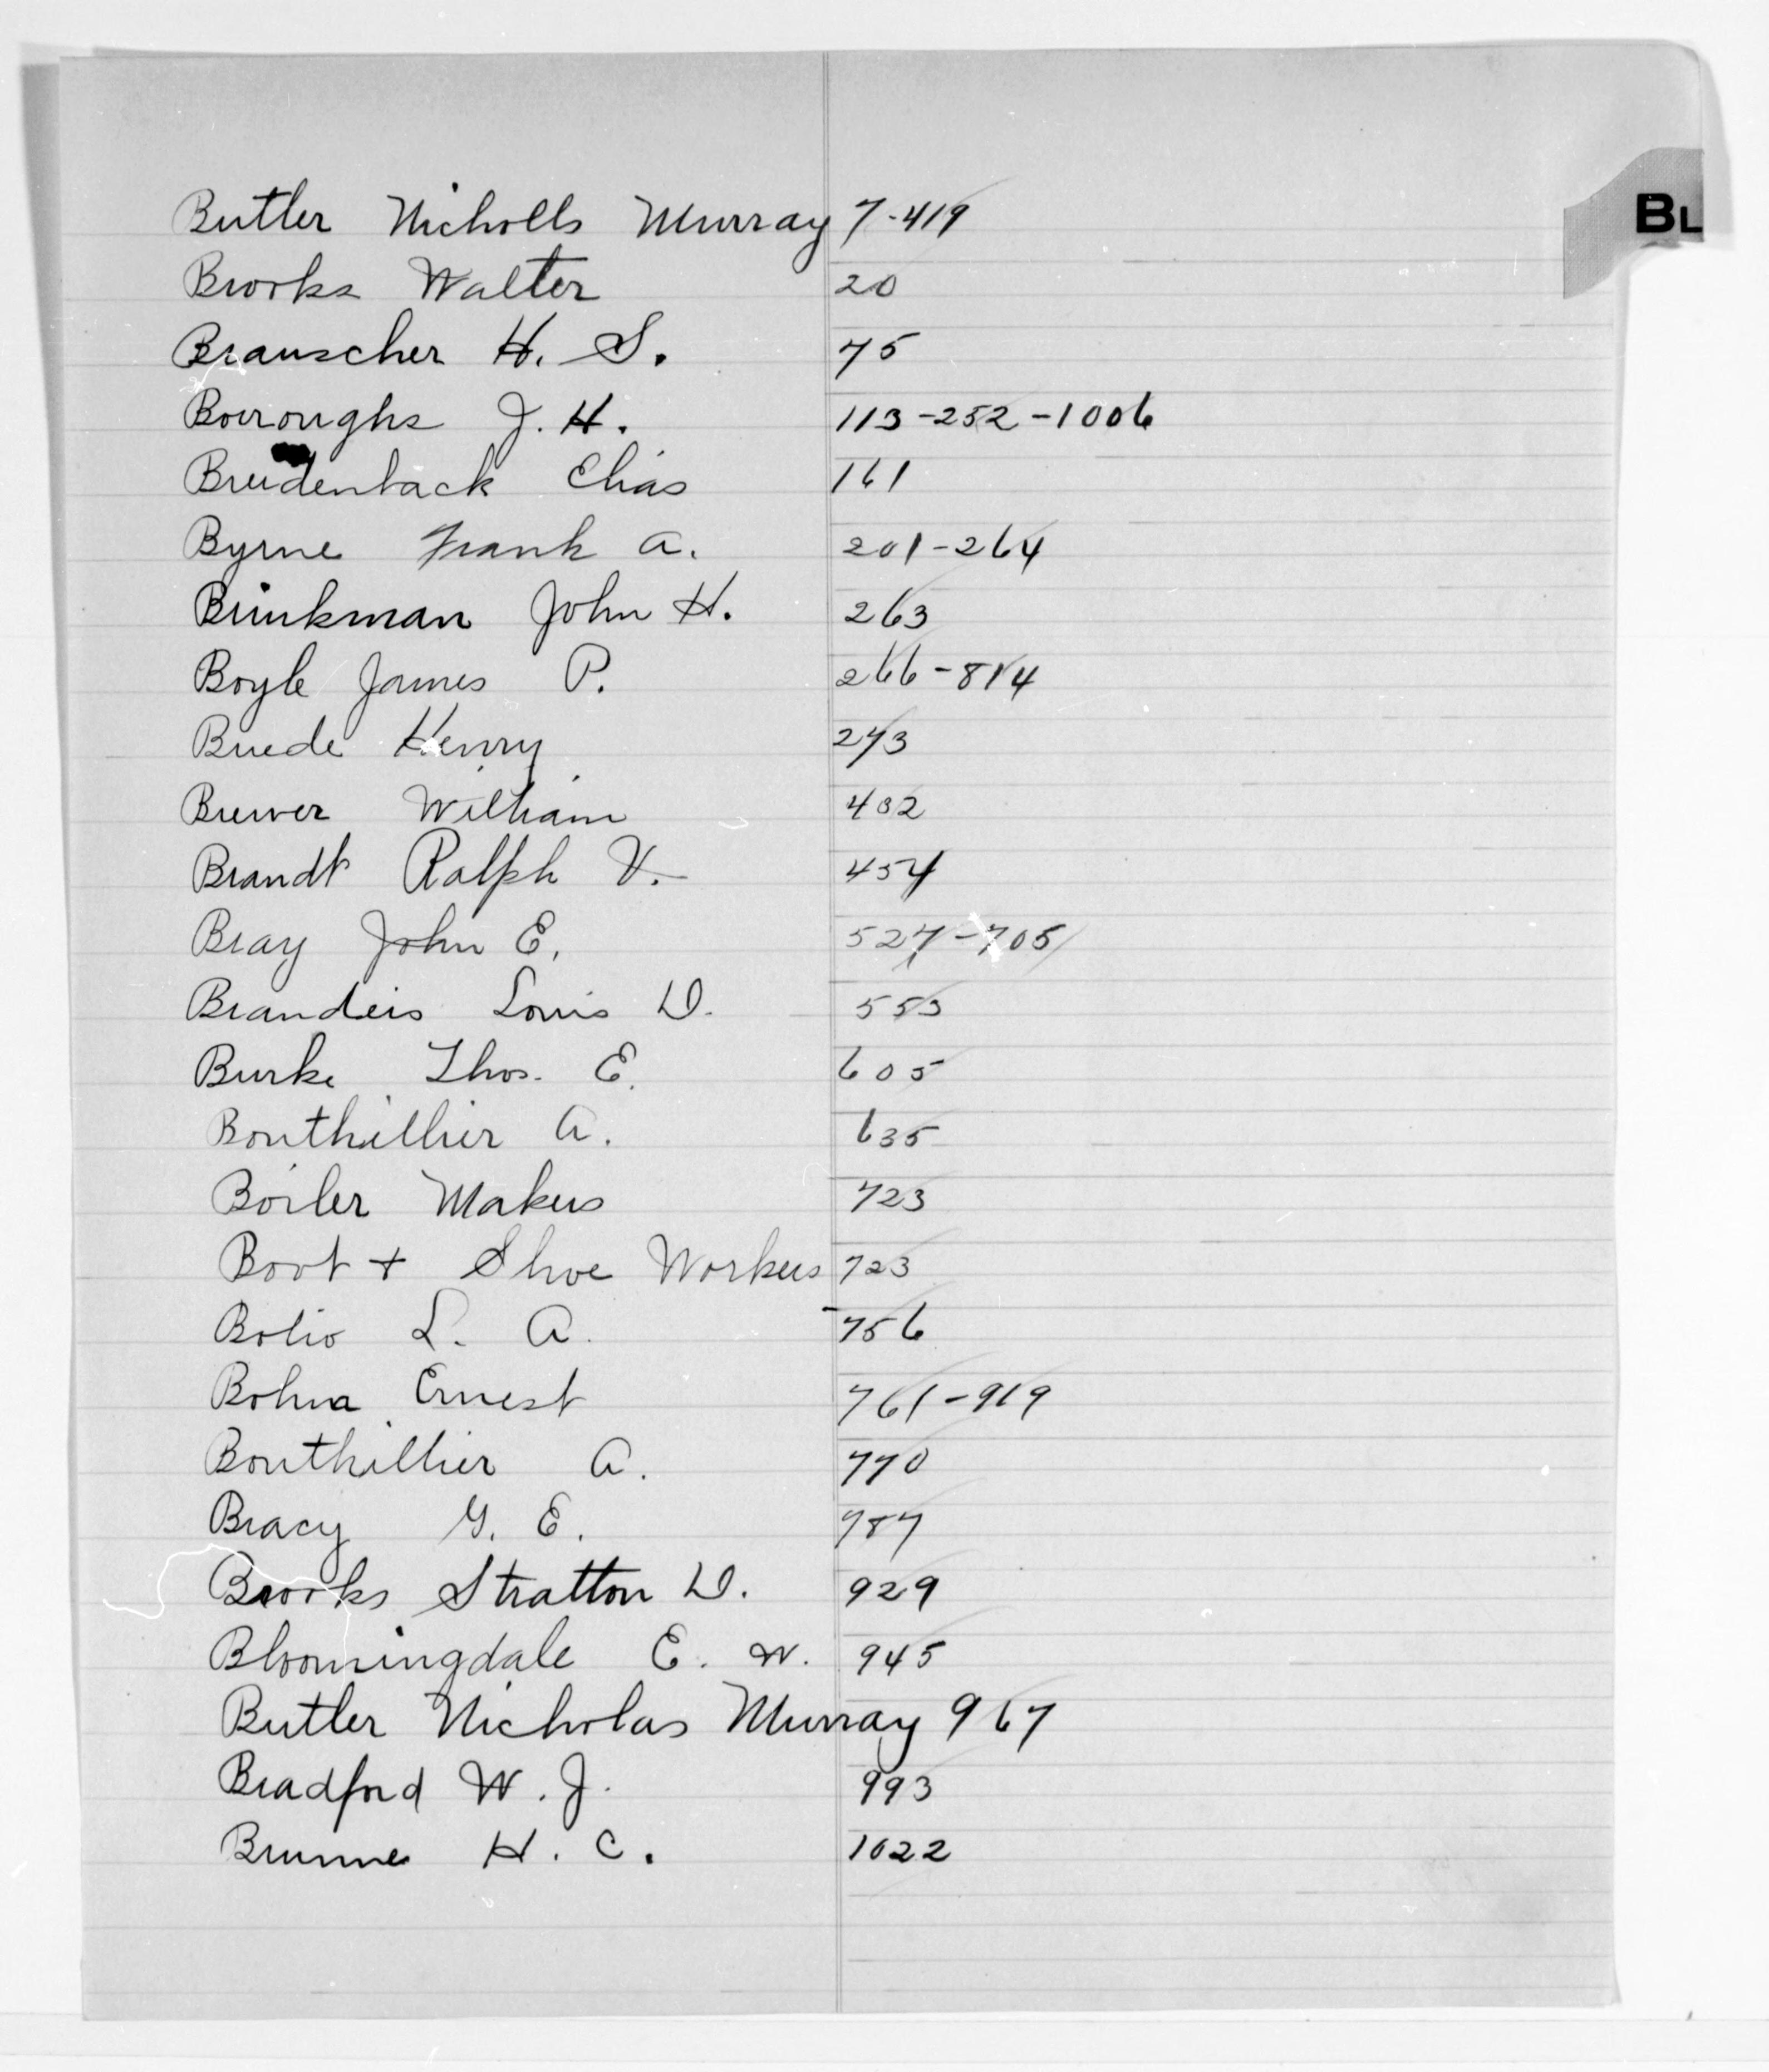 BL
Butler Nicholls Murray 7-419
Brooks Walter 20
Brauscher H. S. 75
Bourroughs J. H. 113-252-1006
Breidenback Elias 161
Byrne Frank A. 201-264
Brinkman John H. 263
Boyle James P. 266-814
Bruede Henry 273
Brewer William 402
Brandt Ralph V. 454
Bray John E. 527-705
Brandeis Louis D. 553
Burke Thos. E. 605
Bouthillier A. 635
Boiler Makers 723
Boot + Shoe Workers 723
Bolio L. A. 756
Bohna Ernest 761-919
Bouthillier A. 770
Bracy G. E. 787
Brooks Stratton D. 929
Bloomingdale E. W. 945
Butler Nicholas Murray 967
Bradford W. J. 993
H. C. 1022